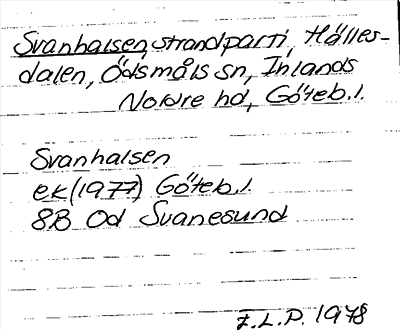 Svanhalsen, strandparti, Hälles-
dalen, Ödsmåls sn, Inlands
Nordre hd, Göteb.l.
Svanhalsen
ek (1977) Göteb.l.
8B Od Svanesund
F.L.P. 1978